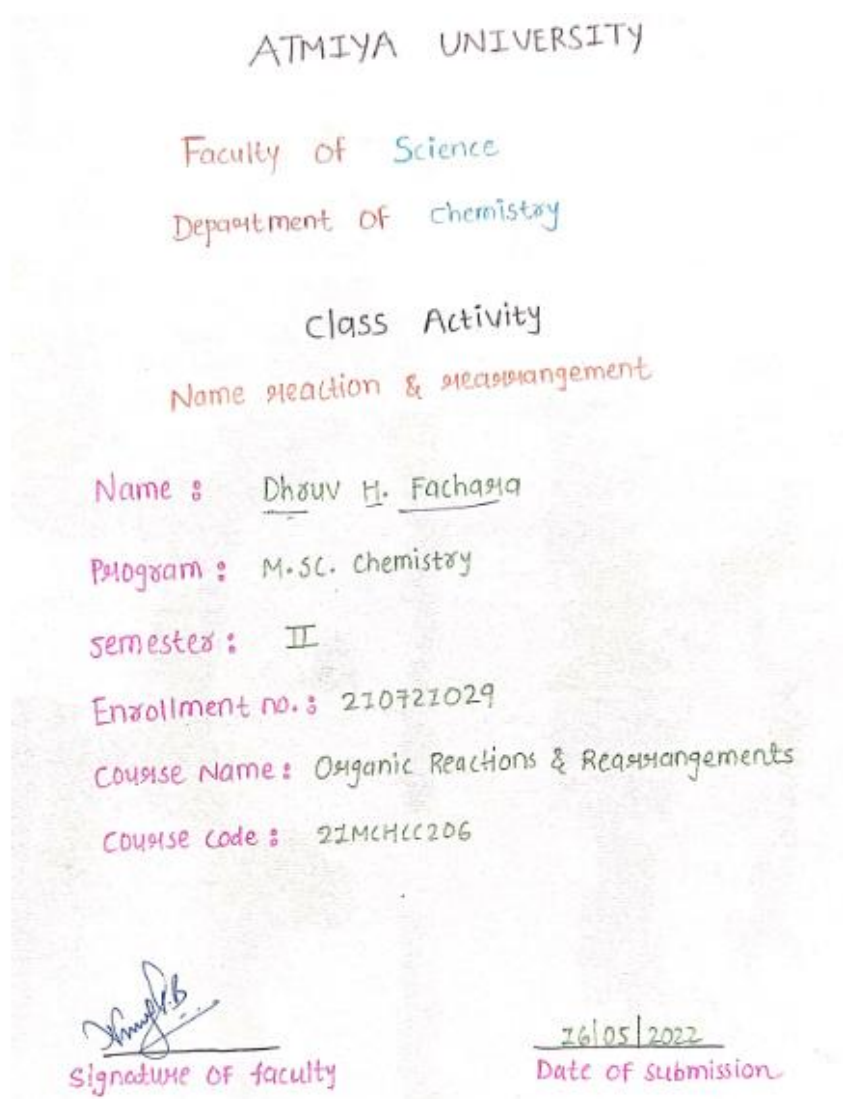 ATMIYA UNIVERSITY
Faculty of Science
Department of Chemistry
Class Activity
Name reaction & rearrangement
Name : Dhruv H. Fachara
Program : M.SC. Chemistry
Semester : II
Enrollment no. : 210721029
Course Name : Organic Reactions & Rearrangements
Course code : 21MCHCC206
16/05/2022
Signature of faculty Date of submission